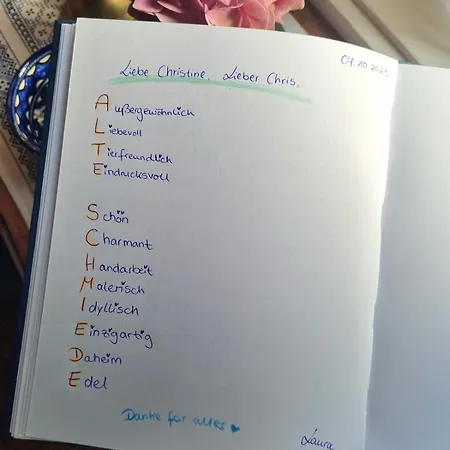 07.10.2023
Liebe Christine, Lieber Chris,
Außergewöhnlich
Liebevoll
Tierfreundlich
Eindrucksvoll
Schön
Charmant
Handarbeit
Malerisch
Idyllisch
Einzigartig
Daheim
Edel
Danke für alles
Laura